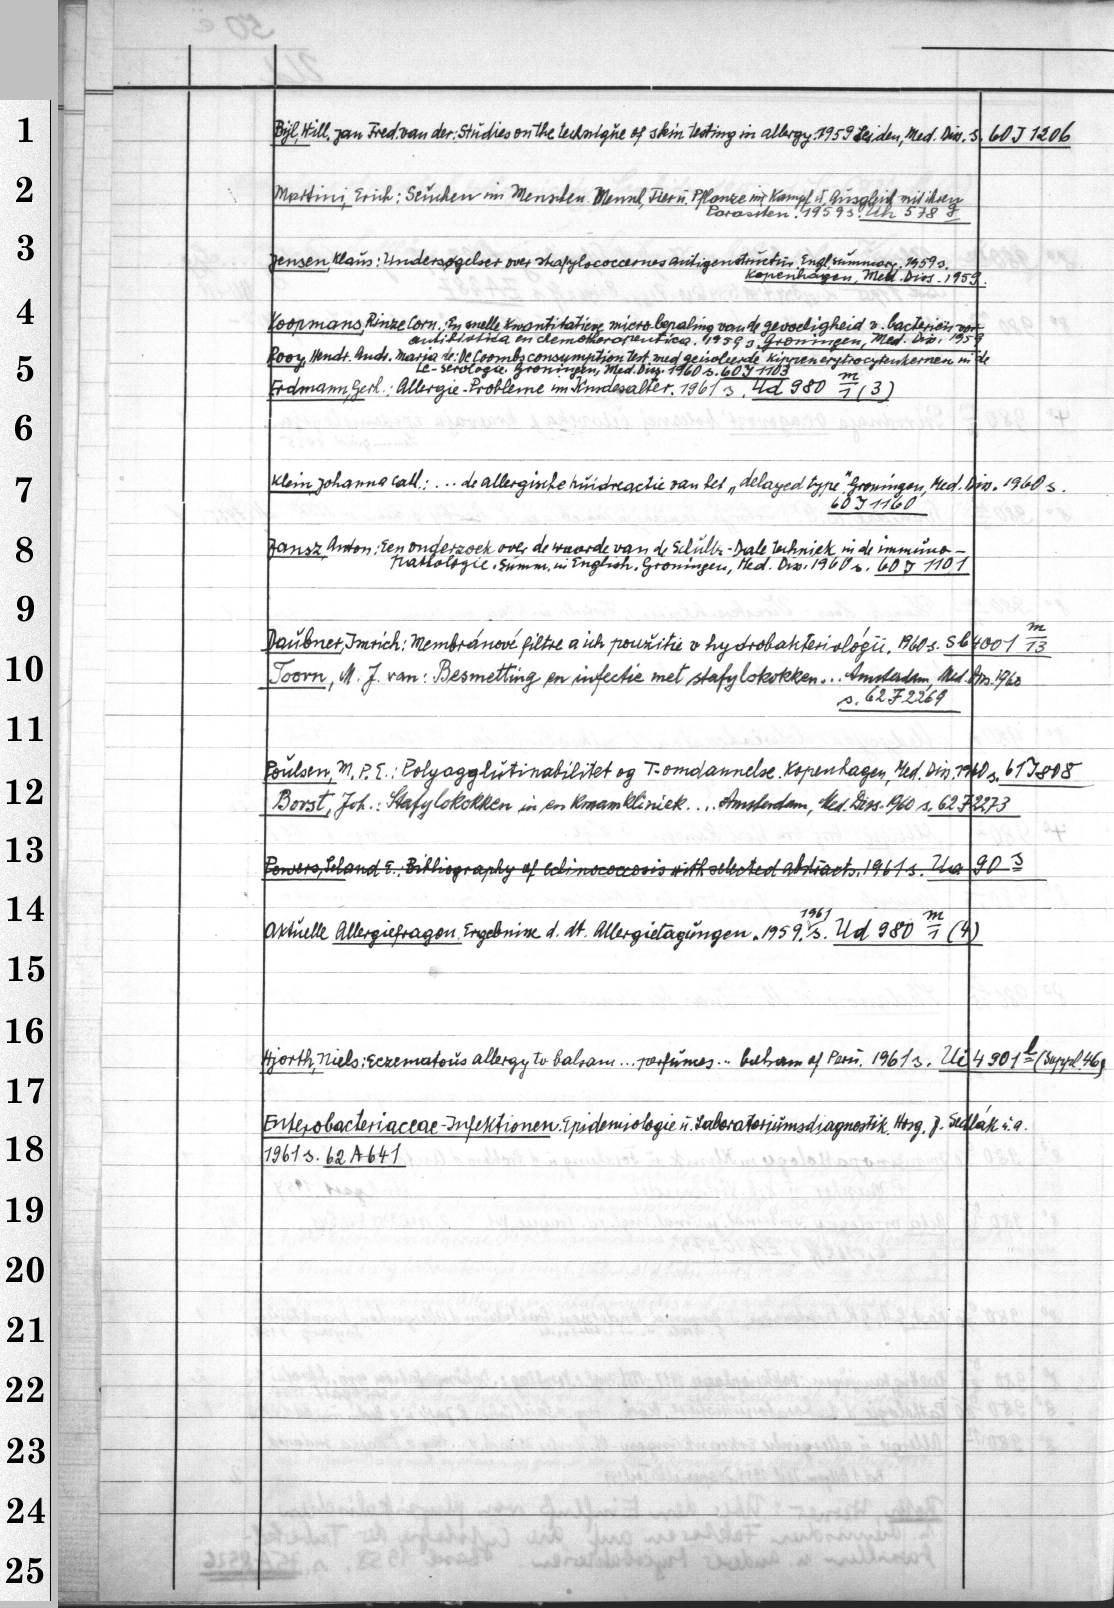 1
Bijl, Will. Jan Fred. van der: Studies on the technique of skin testing in allergy. 1959 Leiden, Med. Diss. s. 60 J 1206
2
Martini, Erich: Seuchen im Menschen. Mensch, Tier u. Pflanze im Kampf u. Ausgleich mit ihren
Parasiten. 1959 s. Uh 578 g
3
Jensen, Klaus: Undersøgelser over stapylococcernes antigenstructur. Engl. summary. 1959 s.
Kopenhagen, Med. Diss. 1959.
4
Koopmans, Rinze Corn.: En snelle kwantitatieve microbepaling van de gevoeligheid v. bacteriën voor
antibiotica en chemotherapeutica. 1959 s. Groningen, Med. Diss. 1959
5
Rooy, Hendr. Andr. Maria de: De Coombs consumption test med geisoleerde kippenerytrocytenkernen in de
Le-serologie. Groningen, Med. Diss. 1960 s. 60 J 1103
Erdmann, Gerh.: Allergie-Probleme im Kindesalter. 1961 s. Ud 980 m/1 (3)
6
7
Klein, Johanna Cath.: ... de allergische huidreactie van het „delayed type" Groningen, Med. Diss. 1960 s.
60 J 1160
8
Jansz, Anton: Een onderzoek over de waarde van de Schultz-Dale techniek in de immuno-
pathologie. Summ. in English. Groningen, Med. Diss. 1960 s. 60 J 1101
9
Daubner, Imrich: Membránové filtre a ich použitie v hydrobakteriológii. 1960 s. Sb 4001 m/13
10
Toorn, M. J. van: Besmetting en infectie met stafylokokken... Amsterdam, Med. Diss. 1960
s. 62 F 2269
11
Poulsen, M. P. E.: Polyagglutinabilitet og T-omdannelse. Kopenhagen, Med. Diss. 1960 s. 61 J 808
12
Borst, Joh.: Stafylokokken in en kraamkliniek. ... Amsterdam, Med. Diss. 1960 s. 62 F 2273
13
Powers, Leland E.: Bibliography of echinococcosis with selected abstracts. 1961 s. Ua 90 s
14
1961
Aktuelle Allergiefragen. Ergebnisse d. dt. Allergietagungen. 1959. s. Ud 980 m/1 (4)
15
16
Hjorth, Niels: Eczematous allergy to balsam ... perfumes ... balsam of Peru. 1961 s. Ui 4901 l (Suppl. 46)
17
Enterobacteriaceae-Infektionen. Epidemiologie u. Laboratoriumsdiagnostik. Hrsg. J. Sedlák u. a.
18
1961 s. 62 A 641
19
20
21
22
23
24
25